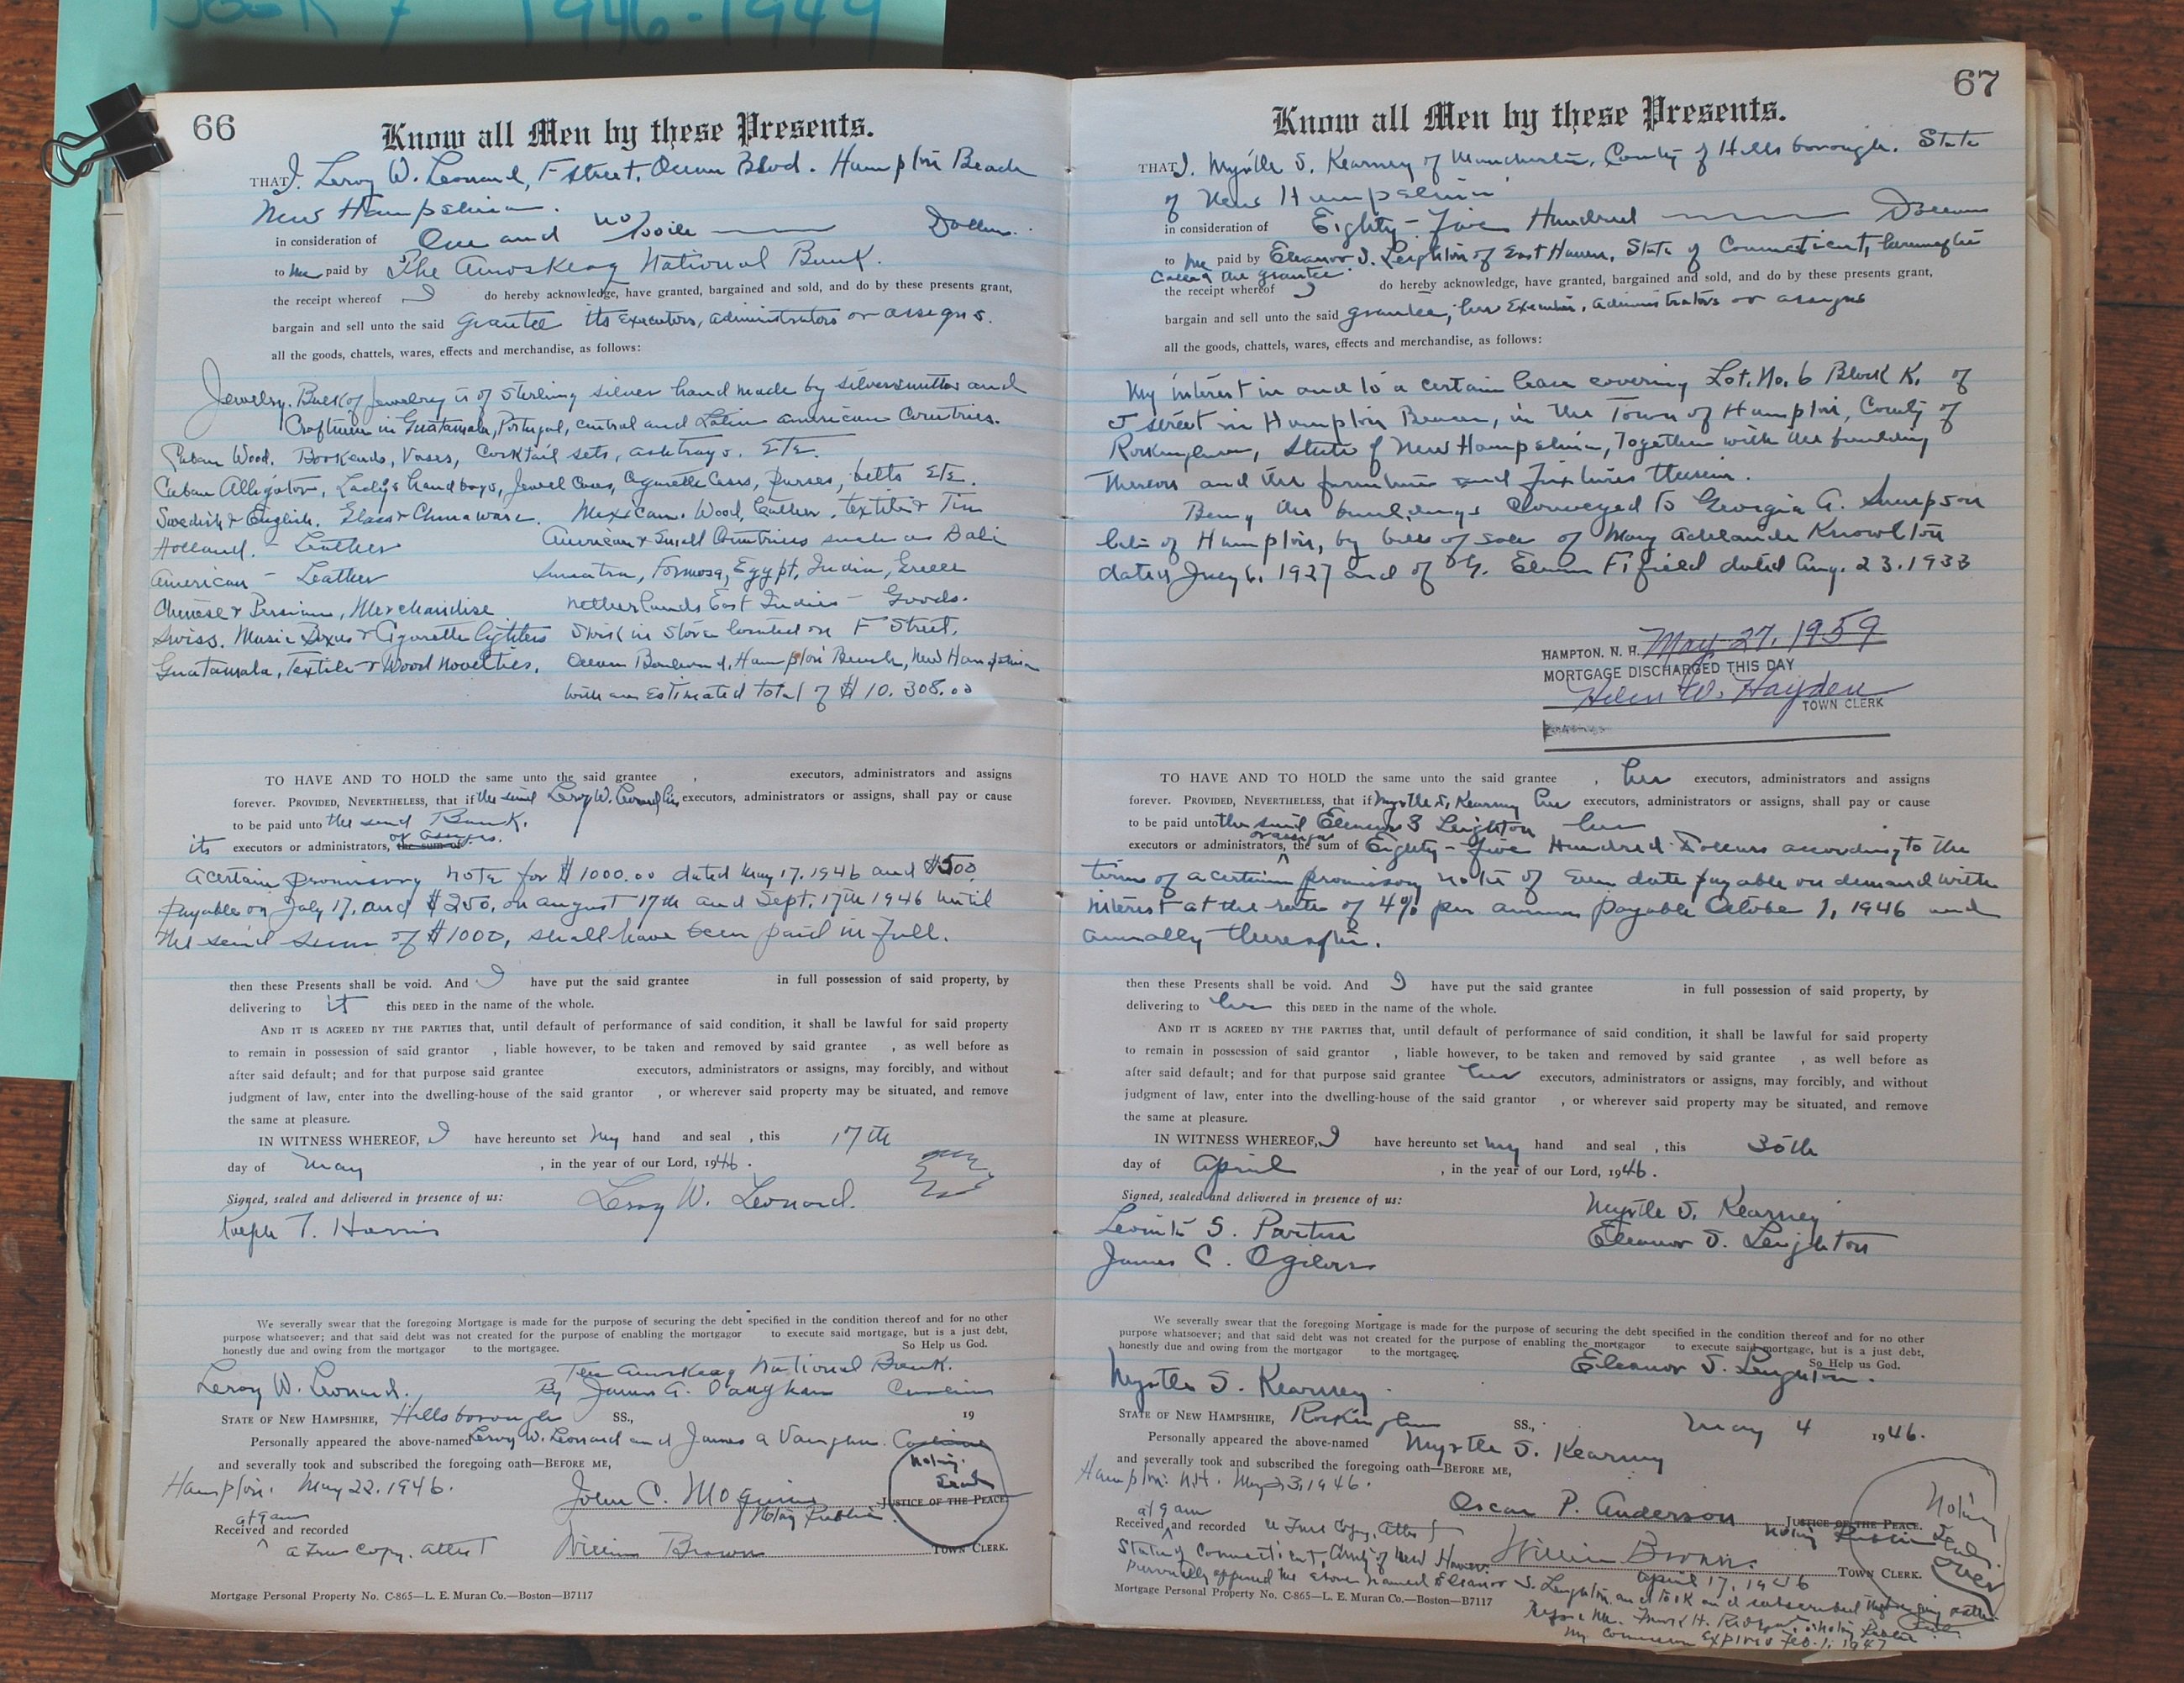 Book 7 1946-1949
66
Know all Men by these Presents.
THAT I, Leroy W. Leonard, F street, Ocean Blvd. Hampton Beach
New Hampshire.
in consideration of One and no/100ths Dollars.
to me paid by The Amoskeag National Bank.
the receipt whereof I do hereby acknowledge, have granted, bargained and sold, and do by these presents grant,
bargain and sell unto the said grantee its executors, administrators or assigns.
all the goods, chattels, wares, effects and merchandise, as follows:
Jewelry. Bulk of jewelry is of sterling silver hand made by silversmiths and
Craftmen in Guatamala, Portugal, central and Latin american Countries.
Cuban Wood. Bookends, Vases, Cocktail sets, ashtrays. Etc.
Cuban Alligator, Lady's handbags, Jewel Cases, Cigarette Cases, Purses, belts Etc.
Swedish & English. Glass & Chinaware. Mexican. Wood, Leather, Textiles & Tin
Holland. - Leather American & Small Countries such as Bali
American - Leather Sumatra, Formosa, Egypt, India, Greece
Chinese & Persian, Merchandise Netherlands East Indies - Goods.
Swiss. Music Boxes & Cigarette lighters Stock in Store located on F Street,
Guatamala, Textile & Wood Novelties. Ocean Boulevard, Hampton Beach, New Hampshire
with an Estimated total of $10,308.00
TO HAVE AND TO HOLD the same unto the said grantee , executors, administrators and assigns
forever. PROVIDED, NEVERTHELESS, that if the said Leroy W. Leonard his executors, administrators or assigns, shall pay or cause
to be paid unto the said Bank,
its executors or administrators, or assigns. the sum of
a certain promissory note for $1000.00 dated May 17, 1946 and $500.
Payable on July 17, and $250, on august 17th and Sept. 17th 1946 until
the said sum of $1000, shall have been paid in full.
then these Presents shall be void. And I have put the said grantee in full possession of said property, by
delivering to it this DEED in the name of the whole.
AND IT IS AGREED BY THE PARTIES that, until default of performance of said condition, it shall be lawful for said property
to remain in possession of said grantor , liable however, to be taken and removed by said grantee , as well before as
after said default; and for that purpose said grantee executors, administrators or assigns, may forcibly, and without
judgment of law, enter into the dwelling-house of the said grantor , or wherever said property may be situated, and remove
the same at pleasure.
IN WITNESS WHEREOF, I have hereunto set my hand and seal , this 17th
day of May , in the year of our Lord, 1946.
Signed, sealed and delivered in presence of us: Leroy W. Leonard.
Ralph T. Harris
We severally swear that the foregoing Mortgage is made for the purpose of securing the debt specified in the condition thereof and for no other
purpose whatsoever; and that said debt was not created for the purpose of enabling the mortgagor to execute said mortgage, but is a just debt,
honestly due and owing from the mortgagor to the mortgagee. So Help us God.
The Amoskeag National Bank.
Leroy W. Leonard. By James A. Vaughan Cashier
STATE OF NEW HAMPSHIRE, Hillsborough SS., 19
Personally appeared the above-named Leroy W. Leonard and James A Vaughan. Cashier
and severally took and subscribed the foregoing oath—BEFORE ME,
Notary Seal
Hampton. May 22. 1946. John C. JUSTICE OF THE PEACE.
Notary Public.
at 9 am
Received and recorded
a True Copy. Attest William Brown TOWN CLERK.
Mortgage Personal Property No. C-865—L. E. Muran Co.—Boston—B7117
67
Know all Men by these Presents.
THAT I, Myrtle S. Kearney of Manchester, County of Hillsborough. State
of New Hampshire
in consideration of Eighty-Five Hundred Dollars
to me paid by Eleanor S. Leighton of East Haven, State of Connecticut, hereinafter
called the grantee.
the receipt whereof I do hereby acknowledge, have granted, bargained and sold, and do by these presents grant,
bargain and sell unto the said grantee, her Executors, administrators or assigns
all the goods, chattels, wares, effects and merchandise, as follows:
My interest in and to a certain lease covering Lot. No. 6 Block K. of
J street in Hampton Beach, in the Town of Hampton, County of
Rockingham, State of New Hampshire, Together with the building
thereon and the furniture and Fixtures therein.
Being the buildings Conveyed to Georgia A. Simpson
late of Hampton, by bills of sale of Mary Adelaide Knowlton
dated July 6, 1927 and of G. Elvin Fifield dated Aug. 23. 1933
HAMPTON, N. H. May 27, 1959
MORTGAGE DISCHARGED THIS DAY
Helen W. Hayden
TOWN CLERK
TO HAVE AND TO HOLD the same unto the said grantee , her executors, administrators and assigns
forever. PROVIDED, NEVERTHELESS, that if Myrtle S. Kearney her executors, administrators or assigns, shall pay or cause
to be paid unto the said Eleanor S Leighton her
executors or administrators, or assigns the sum of Eighty-Five Hundred Dollars according to the
terms of a certain promissory note of Even date payable on demand with
interest at the rate of 4% per annum payable October 1, 1946 and
annually thereafter.
then these Presents shall be void. And I have put the said grantee in full possession of said property, by
delivering to her this DEED in the name of the whole.
AND IT IS AGREED BY THE PARTIES that, until default of performance of said condition, it shall be lawful for said property
to remain in possession of said grantor , liable however, to be taken and removed by said grantee , as well before as
after said default; and for that purpose said grantee her executors, administrators or assigns, may forcibly, and without
judgment of law, enter into the dwelling-house of the said grantor , or wherever said property may be situated, and remove
the same at pleasure.
IN WITNESS WHEREOF, I have hereunto set my hand and seal , this 30th
day of April , in the year of our Lord, 1946.
Signed, sealed and delivered in presence of us: Myrtle S. Kearney
S. Eleanor S. Leighton
James C. Ogilvie
We severally swear that the foregoing Mortgage is made for the purpose of securing the debt specified in the condition thereof and for no other
purpose whatsoever; and that said debt was not created for the purpose of enabling the mortgagor to execute said mortgage, but is a just debt,
honestly due and owing from the mortgagor to the mortgagee. So Help us God.
Myrtle S. Kearney. Eleanor S. Leighton.
STATE OF NEW HAMPSHIRE, Rockingham SS., May 4 1946.
Personally appeared the above-named Myrtle S. Kearney
and severally took and subscribed the foregoing oath—BEFORE ME,
Hampton. N.H. May 23, 1946.
Oscar P. Anderson JUSTICE OF THE PEACE.
Notary Public
Notary Seal. Over
at 9 am
Received and recorded a True Copy, Attest William Brown. TOWN CLERK.
State of Connecticut, County of New Haven April 17, 1946
Personally appeared the above named Eleanor S. Leighton and took and subscribed the foregoing oath
Mortgage Personal Property No. C-865—L. E. Muran Co.—Boston—B7117
Before Me. Frank H. Notary Public
My Commission Expires Feb. 1, 1947